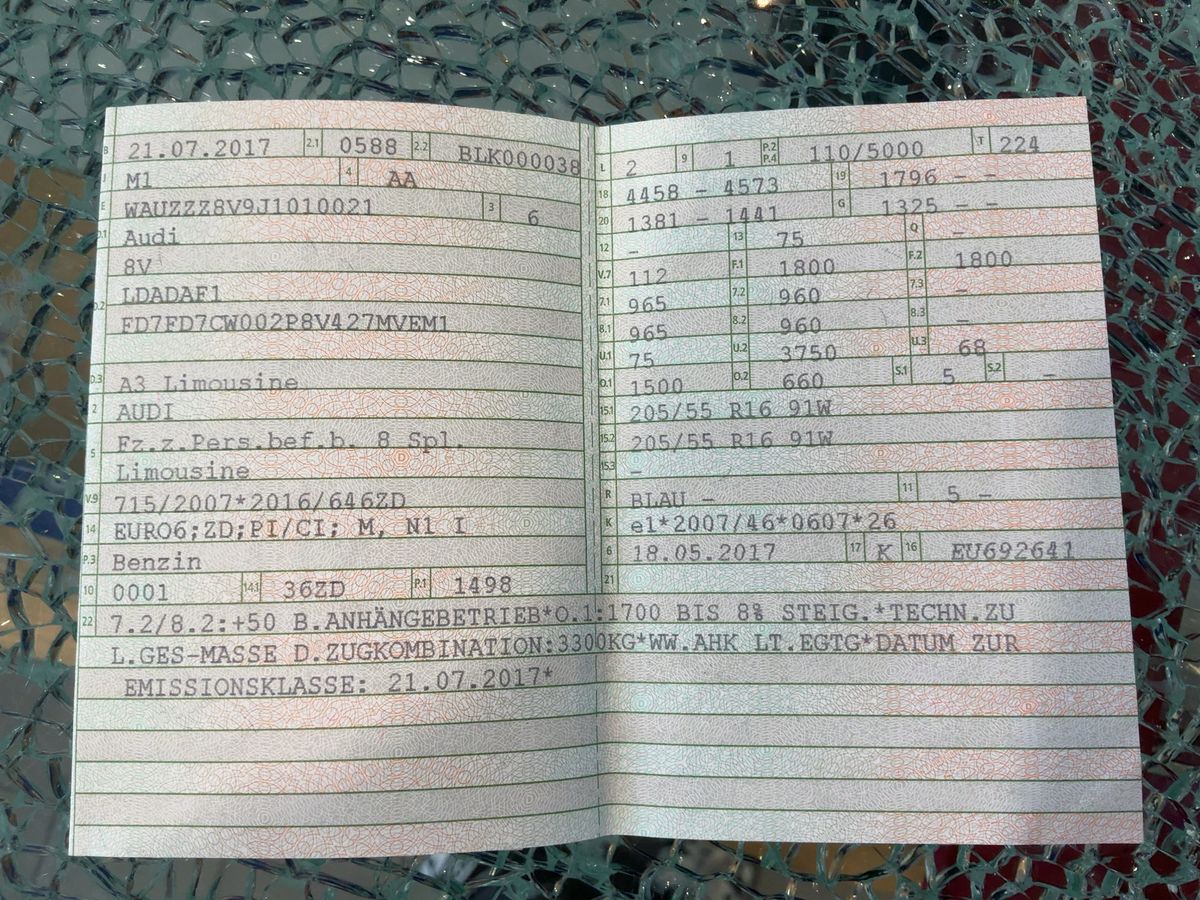 B 21.07.2017 2.1 0588 2.2 BLK000038
J M1 4 AA
E WAUZZZ8V9J1010021 3 6
D.1 Audi
8V
LDADAF1
D.2 FD7FD7CW002P8V427MVEM1
D.3 A3 Limousine
2 AUDI
5 Fz.z.Pers.bef.b. 8 Spl.
Limousine
V.9 715/2007*2016/646ZD
14 EURO6;ZD;PI/CI; M, N1 I
P.3 Benzin
10 0001 14.1 36ZD P.1 1498
L 2 9 1 P.2 P.4 110/5000 T 224
18 4458 - 4573 19 1796 - -
20 1381 - 1441 G 1325 - -
12 - 13 75 Q -
V.7 112 F.1 1800 F.2 1800
7.1 965 7.2 960 7.3 -
8.1 965 8.2 960 8.3 -
U.1 75 U.2 3750 U.3 68
O.1 1500 O.2 660 S.1 5 S.2 -
15.1 205/55 R16 91W
15.2 205/55 R16 91W
15.3 -
R BLAU - 11 5 -
K e1*2007/46*0607*26
6 18.05.2017 17 K 16 EU692641
21
22 7.2/8.2:+50 B.ANHÄNGEBETRIEB*O.1:1700 BIS 8% STEIG.*TECHN.ZU
L.GES-MASSE D.ZUGKOMBINATION:3300KG*WW.AHK LT.EGTG*DATUM ZUR
EMISSIONSKLASSE: 21.07.2017*